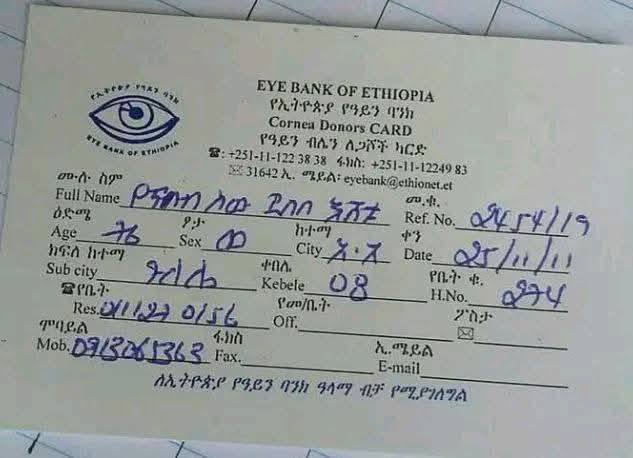 የኢትዮጵያ የዓይን ባንክ
EYE BANK OF ETHIOPIA
EYE BANK OF ETHIOPIA
የኢትዮጵያ የዓይን ባንክ
Cornea Donors CARD
የዓይን ብሌን ለጋሾች ካርድ
☎: +251-11-122 38 38 ፋክስ: +251-11-12249 83
✉ 31642 ኢ. ሜይል: eyebank@ethionet.et
ሙሉ ስም መ.ቁ.
Full Name Ref. No. 2454/19
ዕድሜ ፆታ ከተማ ቀን
Age Sex City አ.አ Date 25/11/11
ክፍለ ከተማ ቀበሌ የቤት ቁ.
Sub city Kebele 08 H.No. 274
☎የቤት የመ/ቤት ፖስታ
Res. 01127 0156 Off. ✉
ሞባይል ፋክስ ኢ.ሜይል
Mob. 0913065363 Fax. E-mail
ለኢትዮጵያ የዓይን ባንክ ዓላማ ብቻ የሚያገለግል